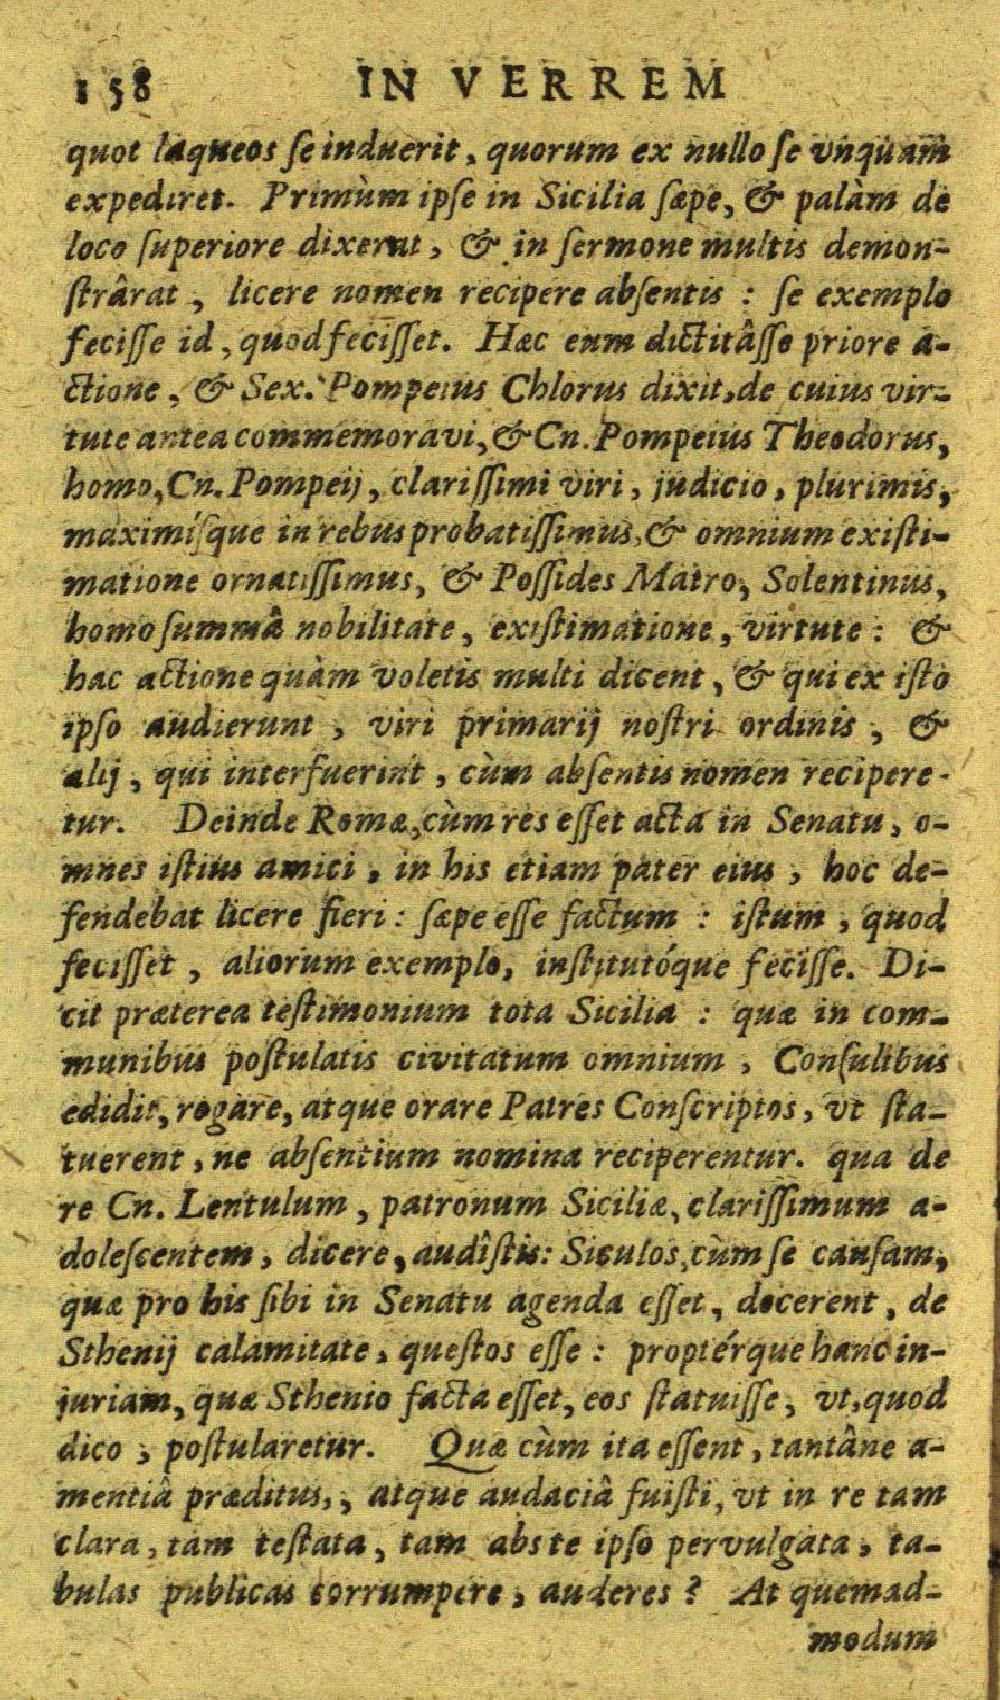 158 IN VERREM
quot laqueos ſe induerit, quorum ex nullo ſe vnquam
expediret. Primùm ipſe in Sicilia ſæpe, & palàm de
loco ſuperiore dixerat, & in ſermone multis demon-
ſtrârat, licere nomen recipere abſentis : ſe exemplo
feciſſe id, quod feciſſet. Hæc eum dictitâſſe priore a-
ctione, & Sex. Pompeius Chlorus dixit, de cuius vir-
tute antea commemoravi, & Cn. Pompeius Theodorus,
homo, Cn. Pompeij, clariſſimi viri, judicio, plurimis,
maximíſque in rebus probatiſſimus, & omnium exiſti-
matione ornatiſſimus, & Poſſides Matro, Solentinus,
homo ſummâ nobilitate, exiſtimatione, virtute : &
hac actione quàm voletis multi dicent, & qui ex iſto
ipſo audierunt, viri primarij noſtri ordinis, &
alij, qui interfuerint, cùm abſentis nomen recipere-
tur. Deinde Romæ, cùm res eſſet acta in Senatu, o-
mnes iſtius amici, in his etiam pater eius, hoc de-
fendebat licere fieri : ſæpe eſſe factum : iſtum, quod
feciſſet, aliorum exemplo, inſtitutóque feciſſe. Di-
cit præterea teſtimonium tota Sicilia : quæ in com-
munibus poſtulatis civitatum omnium, Conſulibus
edidit, rogare, atque orare Patres Conſcriptos, vt ſta-
tuerent, ne abſentium nomina reciperentur. qua de
re Cn. Lentulum, patronum Siciliæ, clariſſimum a-
doleſcentem, dicere, audîſtis: Siculos, cùm ſe cauſam,
quæ pro his ſibi in Senatu agenda eſſet, docerent, de
Sthenij calamitate, queſtos eſſe : proptérque hanc in-
juriam, quæ Sthenio facta eſſet, eos ſtatuiſſe, vt, quod
dico ; poſtularetur. Quæ cùm ita eſſent, tantâne a-
mentiâ præditus, ; atque audaciâ fuiſti, vt in re tam
clara, tam teſtata, tam abs te ipſo pervulgata, ta-
bulas publicas corrumpere, auderes ? At quemad-
modum